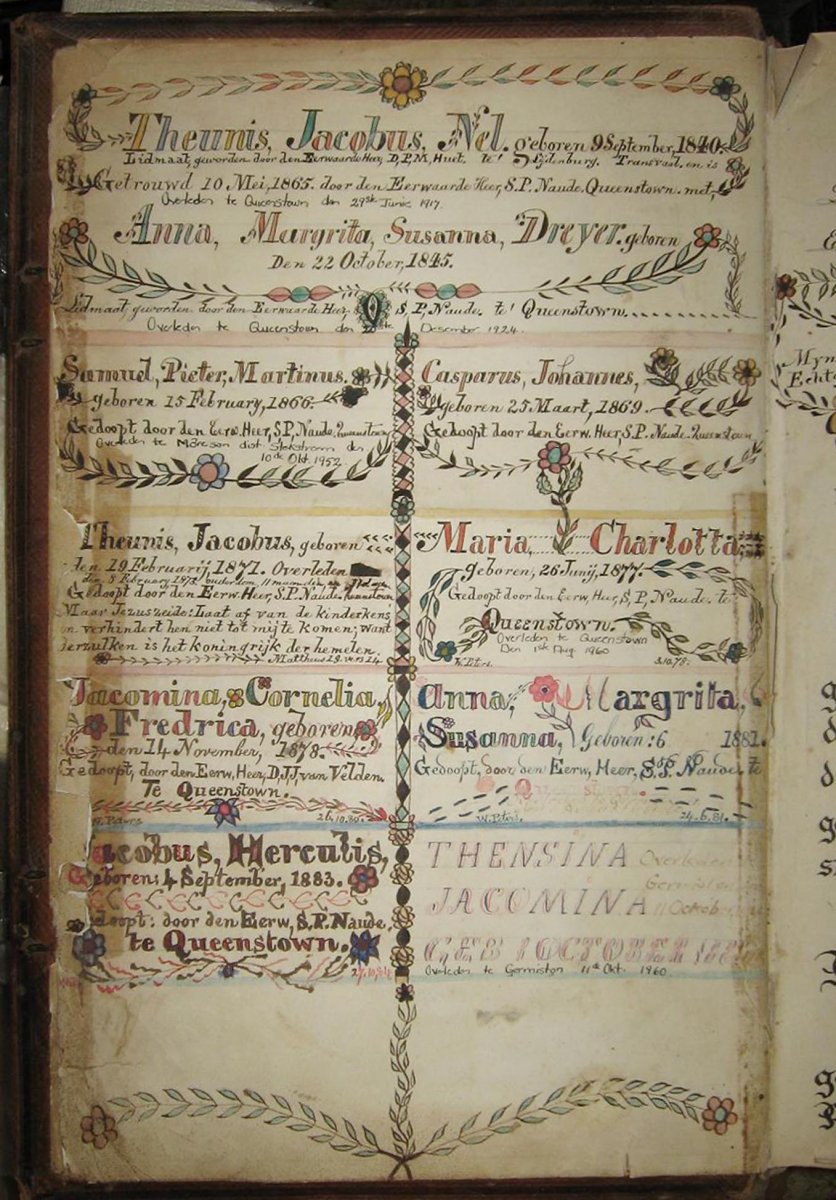 Theunis, Jacobus, Nel. geboren 9 September, 1840.
Lidmaat, geworden door den Eerwaarde Heer, D,P,M, Huet. te' Lijdenburg. Transvaal. en is
Getrouwd 10 Mei, 1865. door den Eerwaarde Heer, S.P. Naude. Queenstown. met,
Overleden te Queenstown den 29ste Junie 1917.
Anna, Margrita, Susanna, Dreyer. geboren
Den 22 October, 1845.
Lidmaat, geworden door den Eerwaarde Heer, S, P, Naude. te' Queenstown.
Overleden te Queenstown den Desember 1924.
Samuel, Pieter, Martinus.
geboren 15 February, 1866.
Gedoopt door den Eerw. Heer, S,P, Naude. Queenstown
Overleden te dist. den
10de Okt. 1952
Casparus, Johannes,
geboren 25 Maart, 1869.
Gedoopt door den Eerw. Heer, S.P. Naude. Queenstown
Theunis, Jacobus, geboren
den 19 Februarij, 1871. Overleden
den 8 February 1872, ouderdom, 11 maanden, en
Gedoopt door den Eerw, Heer, S.P. Naude.
Maar Jezus zeide: Laat af van de kinderkens
en verhindert hen niet tot mij te komen; want
derzulken is het koningrijk der hemelen.
Mattheus 19. vers 14.
Maria, Charlotta,
geboren, 26 Junij, 1877.
Gedoopt door den Eerw, Heer, S, P, Naude. te
Queenstown.
Overleden te Queenstown
Den 1ste Aug. 1960
W. Peters. 3.10.78.
Jacomina, Cornelia,
Fredrica, geboren
den 14 November, 1878.
Gedoopt, door den Eerw, Heer, D,J,J, van Velden.
Te Queenstown.
W. Peters 26.10.80.
Anna, Margrita,
Susanna, Geboren: 6 1881.
Gedoopt, door den Eerw, Heer, S, P, Naude. te
Queenstown.
W. Peters. 24.6.81.
Jacobus, Herculis,
Geboren; 4 September, 1883.
doopt: door den Eerw, S.P. Naude,
te Queenstown.
THENSINA Overleden
JACOMINA 11 October
GEB 1 OCTOBER
Overleden te Germiston 11de Okt. 1960